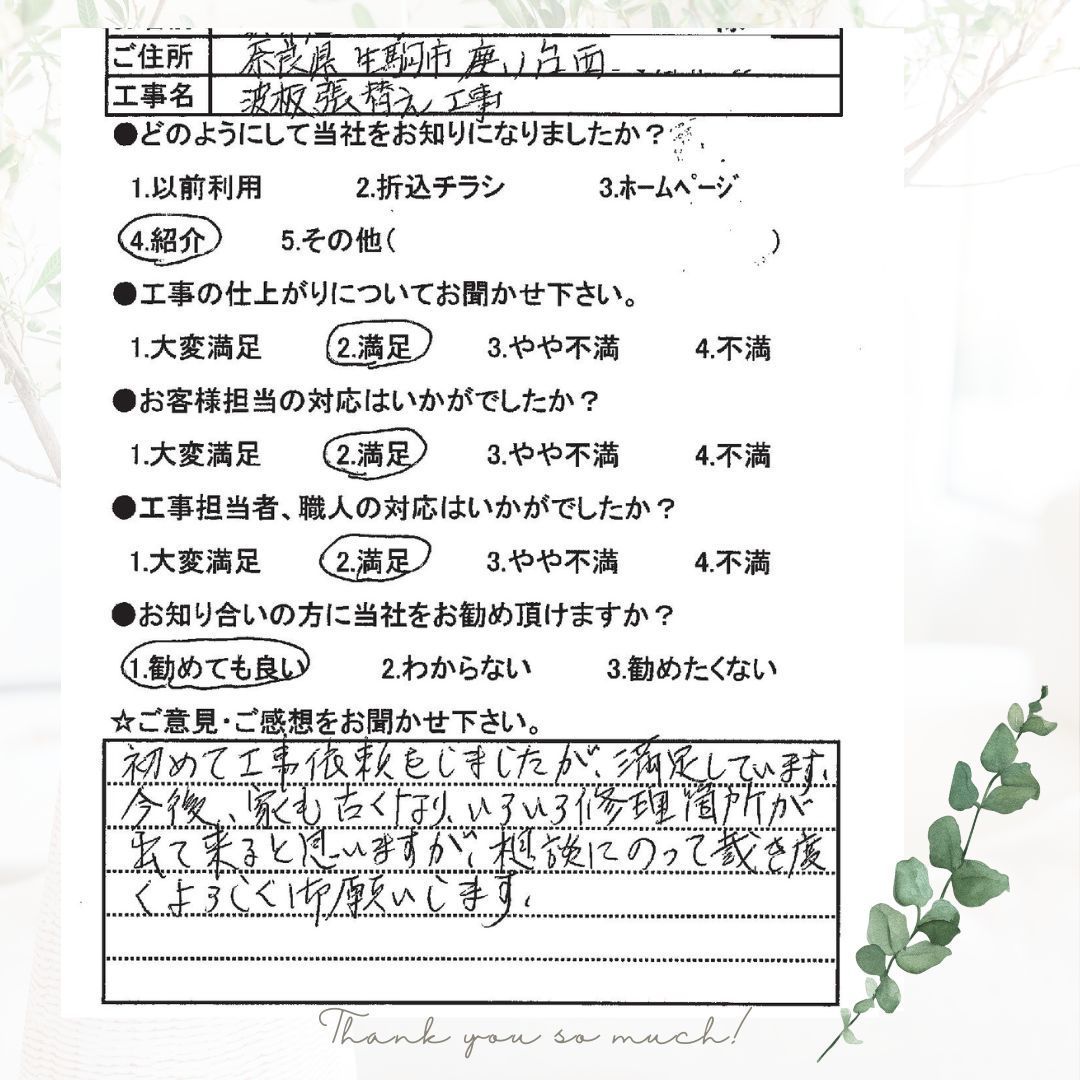 ご住所 奈良県生駒市鹿ノ台西
工事名 波板張替え工事
●どのようにして当社をお知りになりましたか？
1.以前利用 2.折込チラシ 3.ホームページ
4.紹介 5.その他( )
●工事の仕上がりについてお聞かせ下さい。
1.大変満足 2.満足 3.やや不満 4.不満
●お客様担当の対応はいかがでしたか？
1.大変満足 2.満足 3.やや不満 4.不満
●工事担当者、職人の対応はいかがでしたか？
1.大変満足 2.満足 3.やや不満 4.不満
●お知り合いの方に当社をお勧め頂けますか？
1.勧めても良い 2.わからない 3.勧めたくない
☆ご意見・ご感想をお聞かせ下さい。
初めて工事依頼をしましたが、満足しています。
今後、家も古くなり、いろいろ修理箇所が
出て来ると思いますが、相談にのって戴き度
くよろしく御願いします。
Thank you so much!